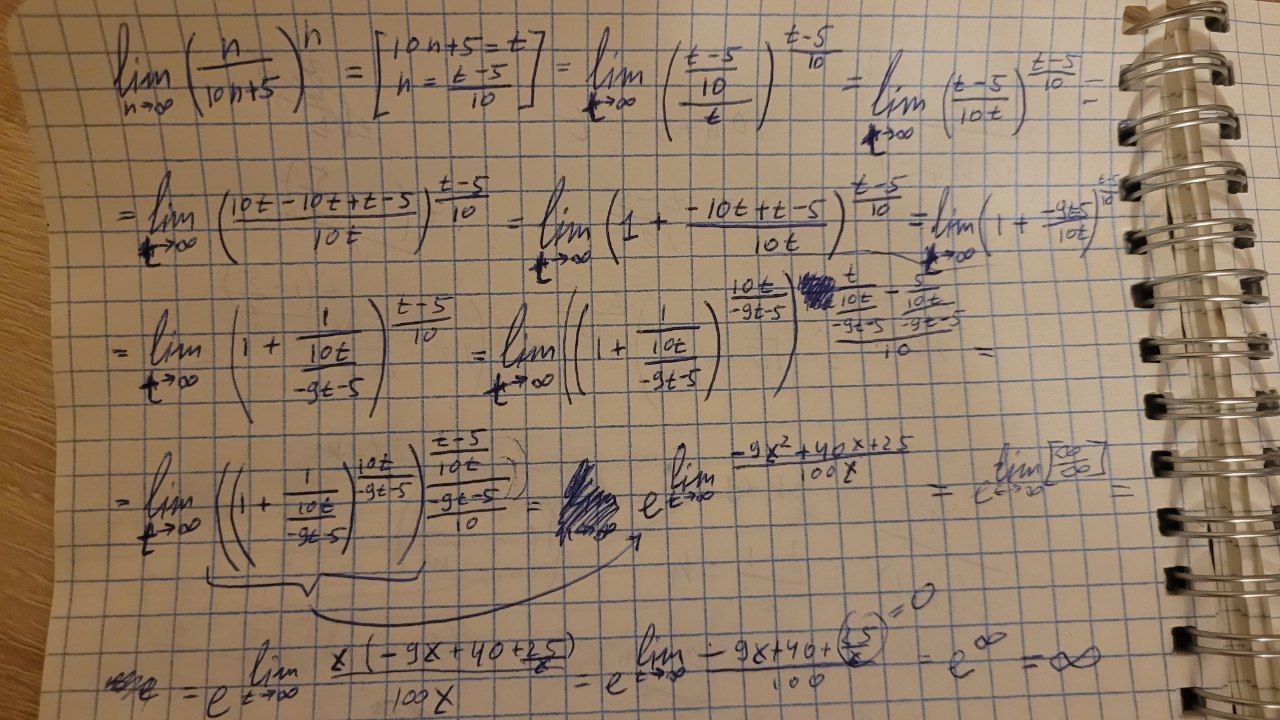 lim n→∞ (n/(10n+5))^n = [10n+5=t n=(t-5)/10] = lim t→∞ (((t-5)/10)/t)^((t-5)/10) = lim t→∞ ((t-5)/(10t))^((t-5)/10) =
= lim t→∞ ((10t-10t+t-5)/(10t))^((t-5)/10) = lim t→∞ (1 + (-10t+t-5)/(10t))^((t-5)/10) = lim t→∞ (1 + (-9t-5)/(10t))^((t-5)/10)
= lim t→∞ (1 + 1/(10t/(-9t-5)))^((t-5)/10) = lim t→∞ ((1 + 1/(10t/(-9t-5)))^(10t/(-9t-5)))^((t/(10t/(-9t-5)) - 5/(10t/(-9t-5)))/10) =
= lim t→∞ ((1 + 1/(10t/(-9t-5)))^(10t/(-9t-5)))^(((t-5)/(10t/(-9t-5)))/10) = e^(lim t→∞ (-9x²+40x+25)/(100x)) = e^(lim t→∞ [∞/∞]) =
= e^(lim t→∞ x(-9x+40+25/x)/(100x)) = e^(lim t→∞ (-9x+40+(25/x)=0)/100) = e^∞ = ∞